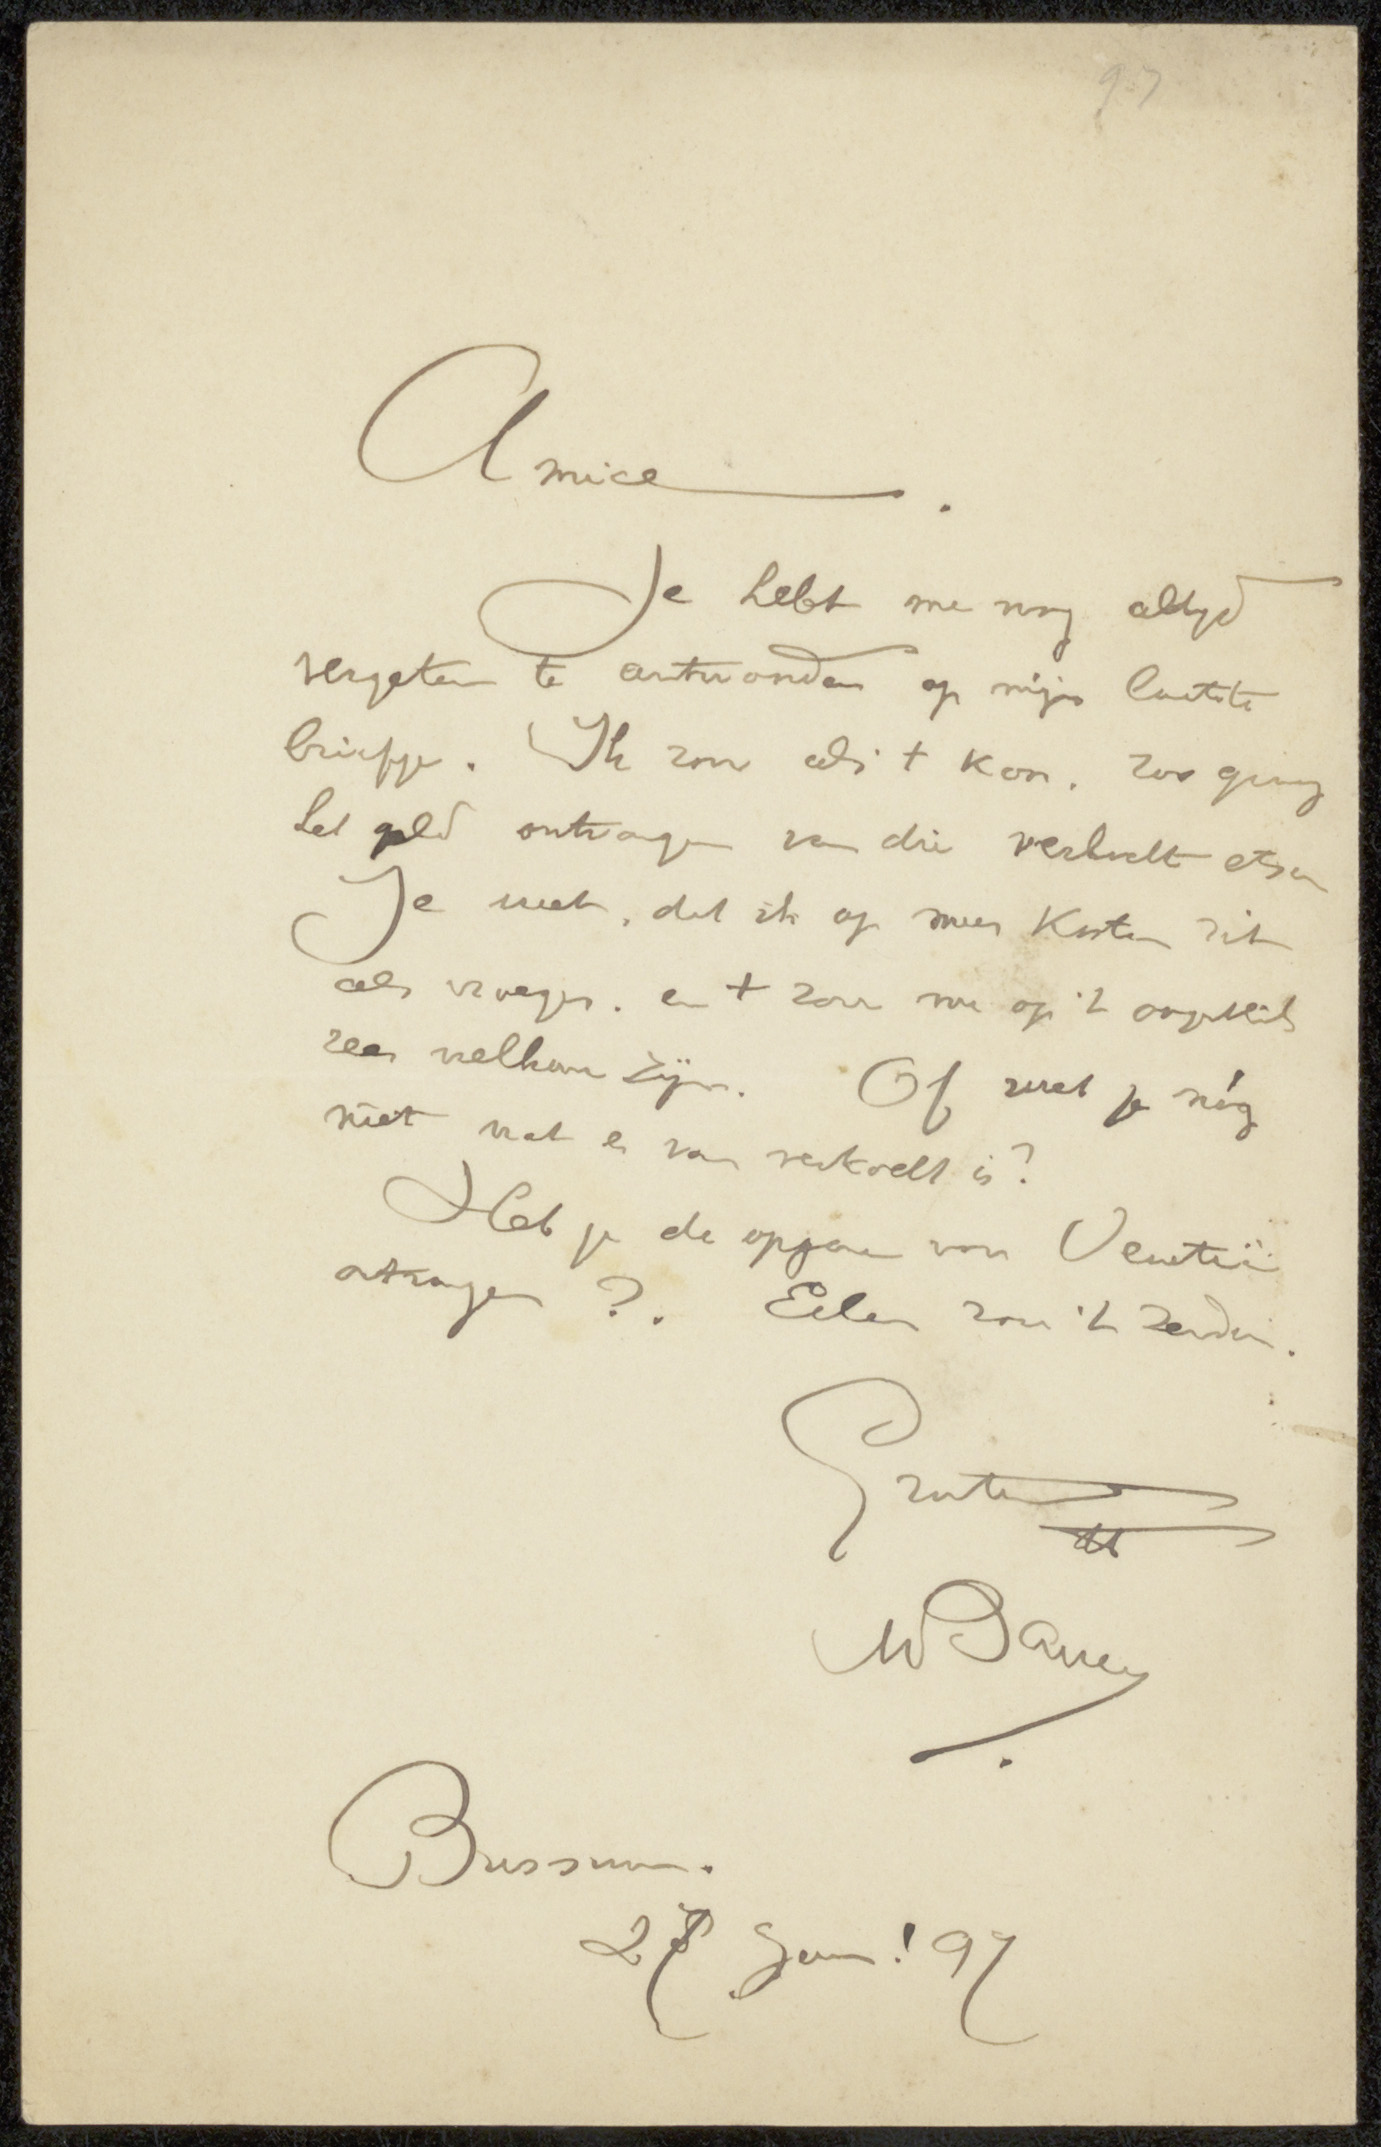 97
Amice.
Je hebt me nog altyd
vergeten te antwoorden op mijn laatste
briefje. Ik zou als 't kon, zoo graag
het geld ontvangen van die verkocht etsen
Je weet, dat ik op meer kosten zit
als vroeger. en 't zou me op 't oogenblik
zeer welkom zijn. Of weet je nóg
niet wat er van verkocht is?
Heb je de opgave van Venetië
ontvangen?. Eilers zou 't zenden.
Groeten
W Bauer
Bussum.
27 Jan! 97